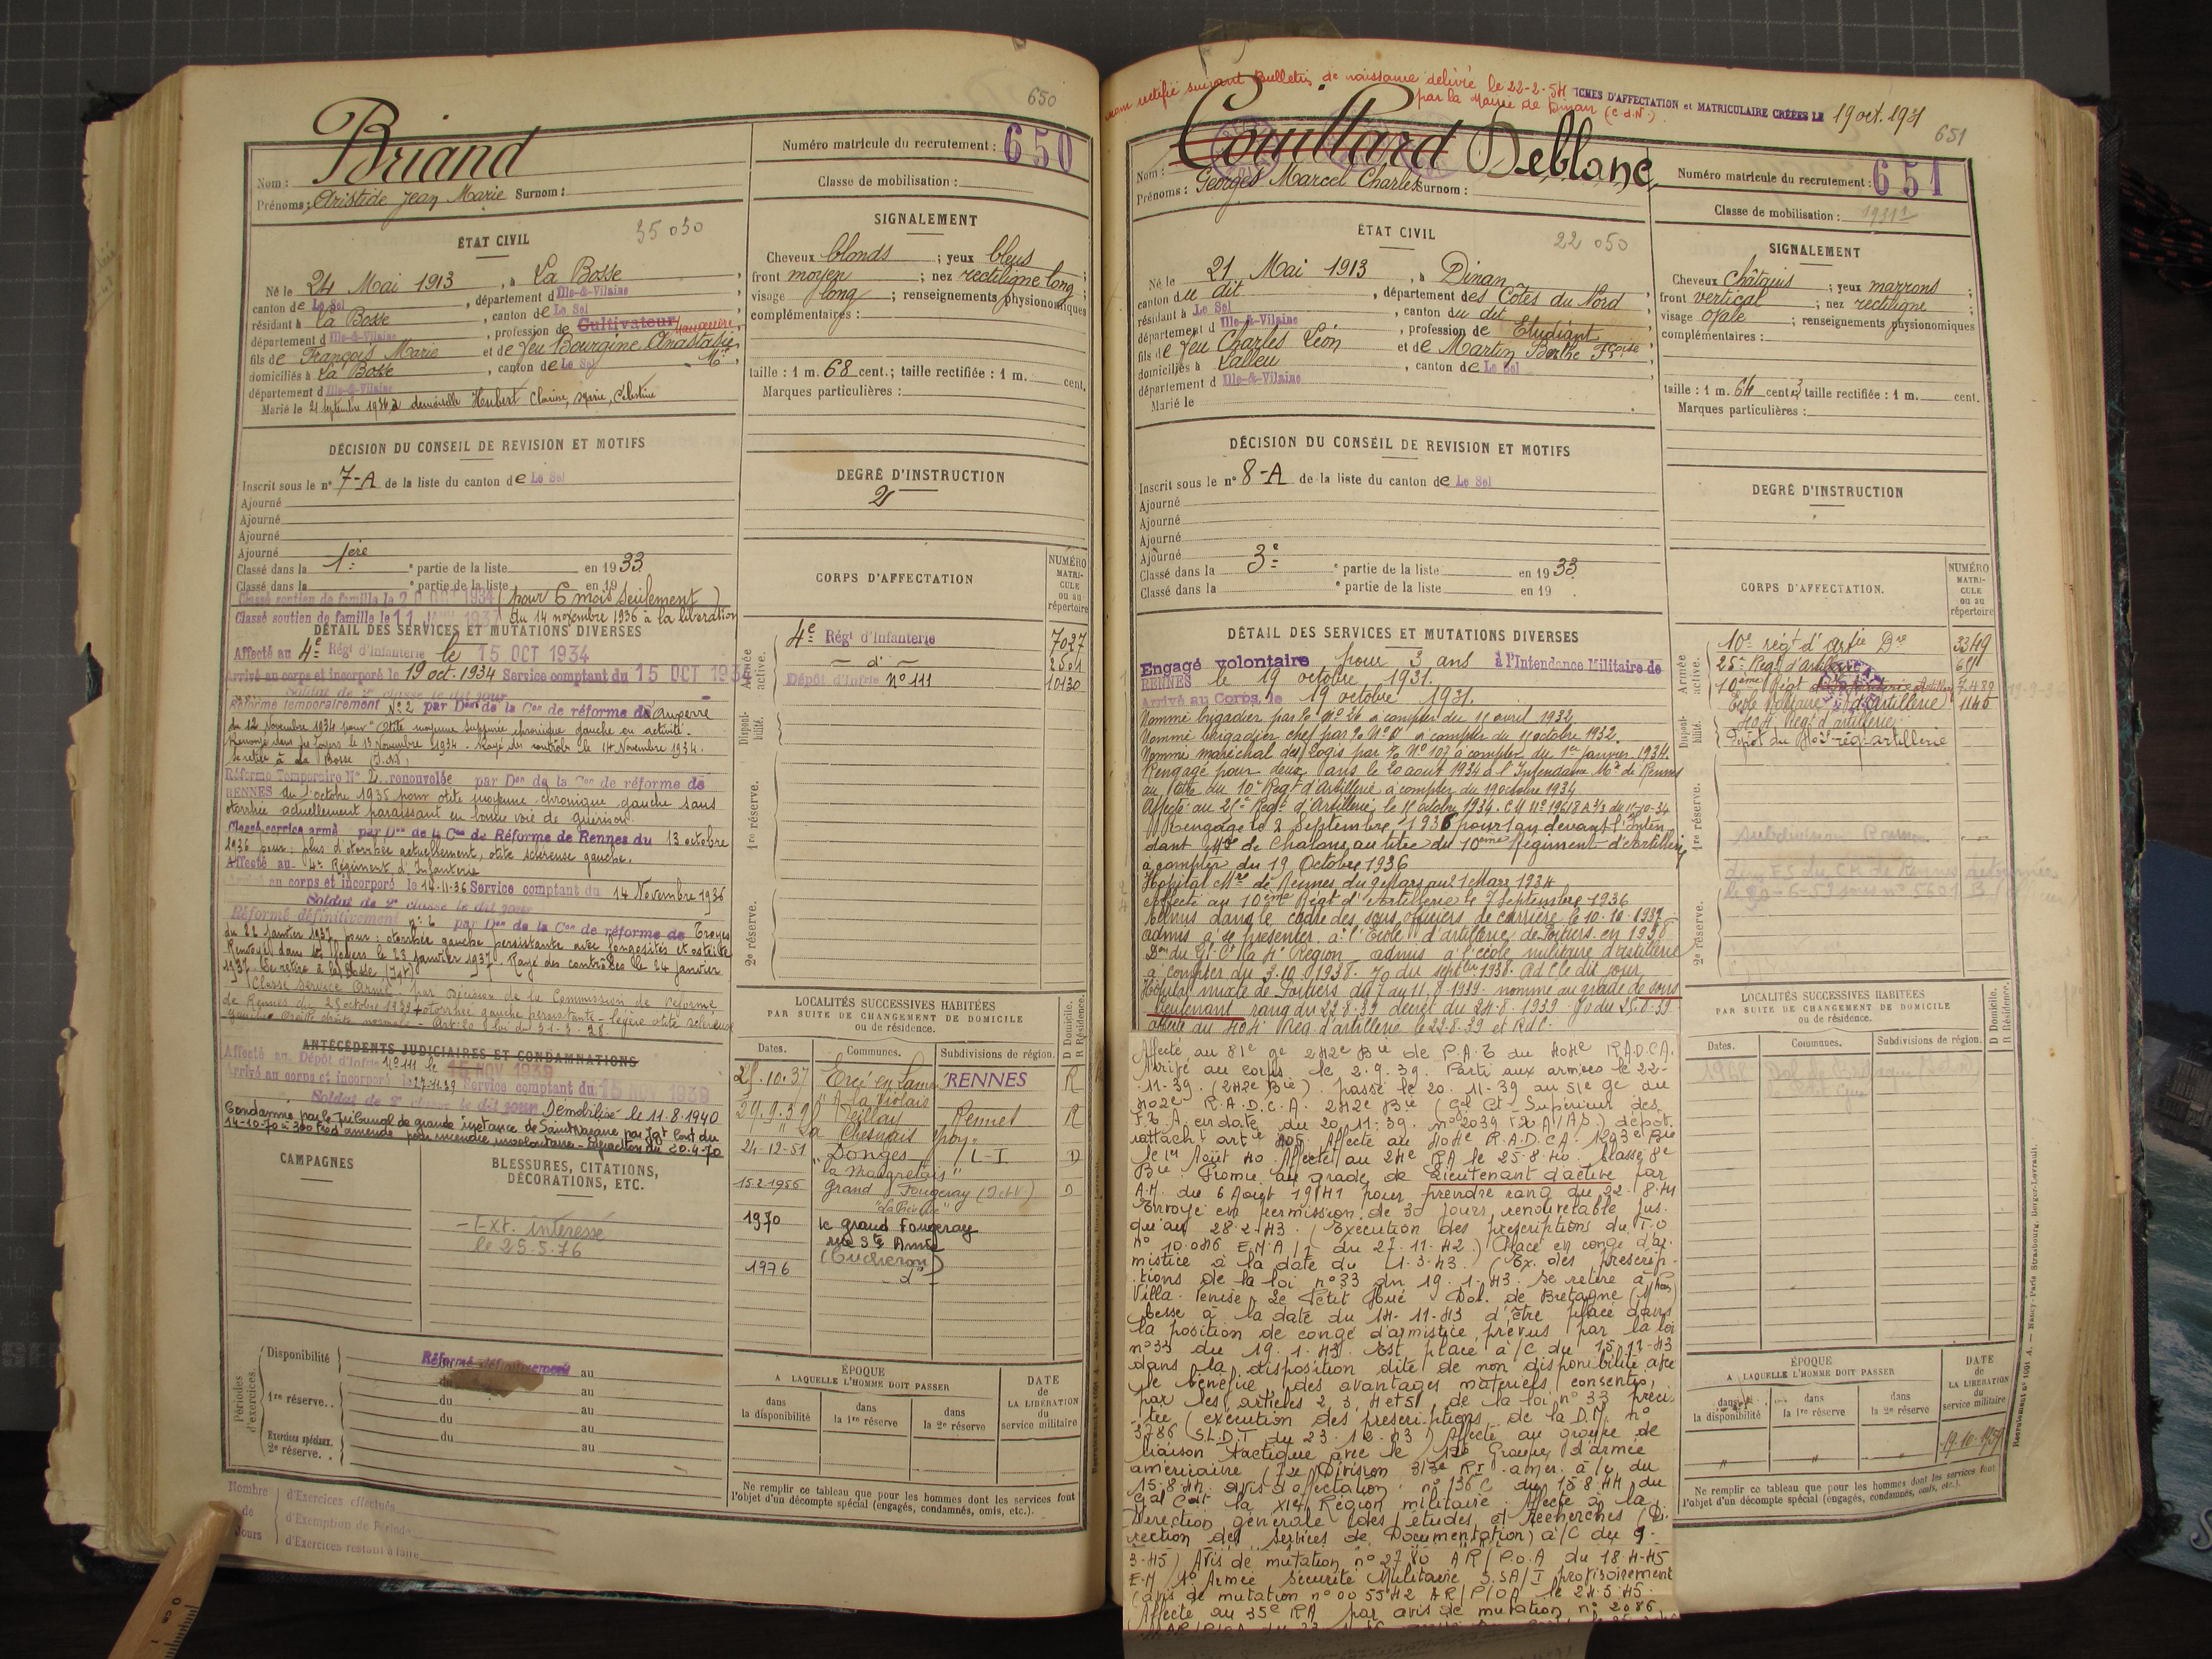 650
Briand
Nom :
Prénoms : Aristide Jean Marie Surnom :
Numéro matricule du recrutement : 650
Classe de mobilisation :
ÉTAT CIVIL
35 050
Né le 24 Mai 1913, à La Bosse,
canton de Le Sel, département d Ille-&-Vilaine
résidant à La Bosse, canton de Le Sel
département d Ille-&-Vilaine, profession de Cultivateur
fils de François Marie et de feu Bourgine Anastasie Mie
domiciliés à La Bosse, canton de Le Sel
département d Ille-&-Vilaine
Marié le 21 septembre 1936 à demoiselle Hubert Clarisse, Marie, Célestine
SIGNALEMENT
Cheveux blonds ; yeux bleus
front moyen ; nez rectiligne long ;
visage long ; renseignements physionomiques
complémentaires :
taille : 1 m. 68 cent.; taille rectifiée : 1 m. cent.
Marques particulières :
DÉCISION DU CONSEIL DE REVISION ET MOTIFS
Inscrit sous le n° 7-A de la liste du canton de Le Sel
Ajourné
Ajourné
Ajourné
Ajourné
Classé dans la 1ère partie de la liste en 1933
Classé dans la ° partie de la liste en 19
Classé soutien de famille le 20 1934 (pour 6 mois seulement)
Classé soutien de famille le 11 1937 (du 14 novembre 1936 à la libération
DEGRÉ D'INSTRUCTION
2
DÉTAIL DES SERVICES ET MUTATIONS DIVERSES
Affecté au 4e Régt d'Infanterie le 15 OCT 1934
Arrivé au corps et incorporé le 19 oct. 1934 Service comptant du 15 OCT 1934
Soldat de 2e classe le dit jour
Réformé temporairement N° 2 par Don de la Con de réforme de Auxerre
du 12 novembre 1934 pour "Otite moyenne suppurée chronique gauche en activité".
Renvoyé dans ses foyers le 13 Novembre 1934. Rayé des contrôles le 14 Novembre 1934.
Se retire à La Bosse (I.&V)
Réforme Temporaire N° 2 renouvelée par Don de la Con de réforme de
RENNES du 1 octobre 1935 pour otite moyenne chronique gauche sans
otorrhée actuellement paraissant en bonne voie de guérison.
Classé service armé par Don de la Con de Réforme de Rennes du 13 octobre
1936 pour : plus d'otorrhée actuellement, otite scléreuse gauche.
Affecté au 4e Régiment d'Infanterie
Arrivé au corps et incorporé le 14-11-36 Service comptant du 14 Novembre 1936
Soldat de 2e classe le dit jour
Réformé définitivement n° 2 par Don de la Con de réforme de Troyes
du 22 janvier 1937 pour : otorrhée gauche persistante avec fongosités et ostéite
Renvoyé dans ses foyers le 23 janvier 1937. Rayé des contrôles le 24 janvier
1937. Se retire à la Bosse (I&V)
Classé Service Armé par Décision de la Commission de Réforme
de Rennes du 25 octobre 1939 otorrhée gauche persistante - légère otite scléreuse
gauche Oreille droite normale - Art. 10 loi du 31-3-28.
ANTÉCÉDENTS JUDICIAIRES ET CONDAMNATIONS
Affecté au Dépôt d'Infrie N° 111 le 15 NOV 1939
Arrivé au corps et incorporé le 27-11-39 Service comptant du 15 NOV 1939
Soldat de 2e classe le dit jour Démobilisé le 11-8-1940
Condamné par le Tribunal de grande instance de Saint Nazaire par Jgt Cont du
14-10-70 à 300 frcs d'amende pour incendie involontaire - Infraction du 20-4-70
CORPS D'AFFECTATION
NUMÉRO MATRICULE ou au répertoire
Armée active.
4e Régt d'Infanterie 7027
- d° - 2501
Dépôt d'Infrie N° 111 10130
Disponibilité.
1re réserve.
2e réserve.
LOCALITÉS SUCCESSIVES HABITÉES
PAR SUITE DE CHANGEMENT DE DOMICILE
ou de résidence.
D Domicile.
R Résidence.
Dates. Communes. Subdivisions de région.
25.10.37 Ercé en Lamée RENNES R
"A la Violais"
29.9.39 Teillay Rennes R
"La Chesnais"
24-12-51 Donges L-I D
"la Magretais"
15.2.1956 Grand Fougeray (I et V) D
1970 le grand Fougeray
rue Ste Anne
1976 d°
CAMPAGNES
BLESSURES, CITATIONS,
DÉCORATIONS, ETC.
- Ext. intéressé
le 25.5.76
Périodes d'exercices.
Disponibilité Réformé définitivement au
1re réserve. . du au
du au
du au
Exercices spéciaux.
2e réserve. . du au
Nombre de Jours
d'Exercices effectués
d'Exemption de Période
d'Exercices restant à faire
ÉPOQUE
A LAQUELLE L'HOMME DOIT PASSER
dans la disponibilité
dans la 1re réserve
dans la 2e réserve
DATE de LA LIBÉRATION du service militaire
Ne remplir ce tableau que pour les hommes dont les services font
l'objet d'un décompte spécial (engagés, condamnés, omis, etc.).
Nom rectifié suivant Bulletin de naissance délivré le 22-2-54
par la Mairie de Dinan (C.d.N.)
FICHES D'AFFECTATION et MATRICULAIRE CRÉÉES LE 19 oct. 1931
651
Couillard Deblanc
Nom :
Prénoms : Georges Marcel Charles Surnom :
Numéro matricule du recrutement : 651
Classe de mobilisation : 1931
ÉTAT CIVIL
22 050
Né le 21 Mai 1913, à Dinan
canton du dit, département des Côtes du Nord
résidant à Le Sel, canton du dit
département d Ille-&-Vilaine, profession de Etudiant
fils de feu Charles Léon et de Martin Berthe Fçoise
domiciliés à Lalleu, canton de Le Sel
département d Ille-&-Vilaine
Marié le
SIGNALEMENT
Cheveux châtains ; yeux marrons
front vertical ; nez rectiligne ;
visage ovale ; renseignements physionomiques
complémentaires :
taille : 1 m. 64 cent. taille rectifiée : 1 m. cent.
Marques particulières :
DÉCISION DU CONSEIL DE REVISION ET MOTIFS
Inscrit sous le n° 8-A de la liste du canton de Le Sel
Ajourné
Ajourné
Ajourné
Ajourné
Classé dans la 3e partie de la liste en 1933
Classé dans la ° partie de la liste en 19
DEGRÉ D'INSTRUCTION
DÉTAIL DES SERVICES ET MUTATIONS DIVERSES
Engagé volontaire pour 3 ans à l'Intendance Militaire de
RENNES le 19 octobre 1931.
Arrivé au Corps le 19 octobre 1931.
Nommé brigadier par le N° 24 à compter du 11 avril 1932
Nommé brigadier chef par à compter du 11 octobre 1932.
Nommé maréchal des Logis par N° 107 à compter du 1er janvier 1934.
Rengagé pour deux ans le 20 août 1934 à l'Intendance Mre de Rennes
au titre du 10e Régt d'Artillerie à compter du 19 octobre 1934
Affecté au 25e Régt d'Artillerie le 11 octobre 1934.
Rengagé le 2 Septembre 1936 pour 1 an devant l'Inten
dant Mre de Chalons au titre du 10ème Régiment d'Artillerie
à compter du 19 Octobre 1936
Hôpital Mre de Rennes du 9 Mars au 21 Mars 1934
affecté au 10ème Régt d'Artillerie le 7 Septembre 1936
Admis dans le cadre des sous officiers de carrière le 10-10-1937
admis à se présenter à l'Ecole d'artillerie de Poitiers en 1938
Don du Gl Ct la 4e Région admis à l'école militaire d'artillerie
à compter du 3.10.1938. JO du 1938. RdC le dit jour
Hôpital mixte de Poitiers du 7 au 11.8.1939. nommé au grade de sous
lieutenant rang du 22.8.39 décret du 24.8.1939 Jo du 25.8.39
affecté au 404e Reg. d'artillerie le 22-8-39 et RdC.
Affecté au 81e ge 242e Bie de P.A.T du 404e R.A.D.C.A.
Arrivé au corps le 2.9.39. Parti aux armées le 22-
11-39. (242e Bie). passé le 20.11.39 au 51e ge du
402e R.A.D.C.A. 242e Bie (Gal Ct Supérieur des
F.T.A en date du 20.11.39. n° 2039 dépôt.
rattacht artie 405. Affecté au 404e R.A.D.C.A. 1203e Bie
le 1er Août 40. Affecté au 24e RA le 25.8.40. Classé 8e
Bie Promu au grade de Lieutenant d'active par
A.M. du 6 Août 1941 pour prendre rang du 22.8.41
Envoyé en permission de 30 jours renouvelable jus-
qu'au 28-2-43. (Exécution des prescriptions du T.O
N° 10.086 E.M.A/1 du 27.11.42.) Placé en congé d'ar-
mistice à la date du 1.3.43. (Ex. des prescrip-
tions de la loi n° 33 du 19.1.43. Se retire à
Villa Venise, Le Petit Hué Dol. de Bretagne
Cesse à la date du 14.11.43 d'être placé dans
la position de congé d'armistice, prévus par la loi
n° 33 du 19.1.43. Est placé à/c du 15.11.43
dans la disposition dite de non disponibilité avec
le bénéfice des avantages matériels consentis
par les articles 2, 3, 4 et 51 de la loi n° 33 préci-
tée (exécution des prescriptions de la D.M. n°
3786 S.L.D.T du 23.10.43) Affecté au groupe de
liaison tactique avec le 12e Groupe d'armée
américaine 313e RI. amer. à/c du
15.8.44 avis d'affectation n° 136 C du 15.8.44 du
Gal Cdt la XIe Région militaire. Affecté à la
Direction générale des études et Recherches (Di-
rection des services de Documentation) à/c du 9-
3-45) Avis de mutation n° 2780 AR/P.O.A du 18.4.45
E.M 1e Armée Sécurité Militaire S.SA/I provisoirement
(avis de mutation n° 005542 AR/P/OA le 24.5.45.
Affecté au 35e RA par avis de mutation n° 2086
CORPS D'AFFECTATION.
NUMÉRO MATRICULE ou au répertoire
Armée active.
10e régt d'artie Dre 3349
25e Régt d'artillerie
10ème Régt d'Artillerie 7489
Ecole Militaire d'artillerie 1145
404e Régt d'artillerie
Dépôt du 404e rég. artillerie
Disponibilité.
1re réserve.
2e réserve.
LOCALITÉS SUCCESSIVES HABITÉES
PAR SUITE DE CHANGEMENT DE DOMICILE
ou de résidence.
D Domicile.
R Résidence.
Dates. Communes. Subdivisions de région.
1968 Dol de Bretagne
ÉPOQUE
A LAQUELLE L'HOMME DOIT PASSER
dans la disponibilité
dans la 1re réserve
dans la 2e réserve
DATE de LA LIBÉRATION du service militaire
" " "
Ne remplir ce tableau que pour les hommes dont les services font
l'objet d'un décompte spécial (engagés, condamnés, omis, etc.).
Nancy-Paris Strasbourg, Berger-Levrault.